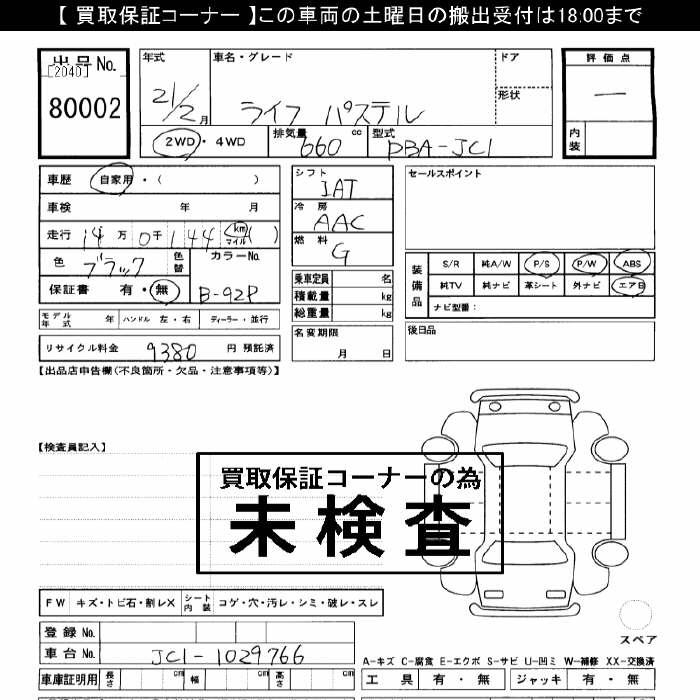 【 買取保証コーナー 】この車両の土曜日の搬出受付は18:00まで
出品No.
[2040]
80002
年式 車名・グレード ドア
21/2月 ライフ パステル 形状
2WD・4WD 排気量 660 cc 型式 DBA-JC1
評価点
—
内装
車歴 自家用・( )
車検 年 月
走行 14万0千144 (km マイル)
色 ブラック 色替 カラーNo.
保証書 有・無 B-92P
モデル年式 年 ハンドル 左・右 ディーラー・並行
リサイクル料金 9380 円 預託済
シフト IAT
冷房 AAC
燃料 G
乗車定員 名
積載量 kg
総重量 kg
名変期限
月 日
セールスポイント
装備品
S/R 純A/W P/S P/W ABS
純TV 純ナビ 革シート 外ナビ エアB
ナビ型番:
後日品
【出品店申告欄(不良箇所・欠品・注意事項等)】
【検査員記入】
買取保証コーナーの為
未検査
FW キズ・トビ石・割レX シート内装 コゲ・穴・汚レ・シミ・破レ・スレ
スペア
登録No.
車台No. JC1-1029766
A-キズ C-腐食 E-エクボ S-サビ U-凹ミ W-補修 XX-交換済
車庫証明用 長さ cm 幅 cm 高さ cm
工具 有・無 ジャッキ 有・無